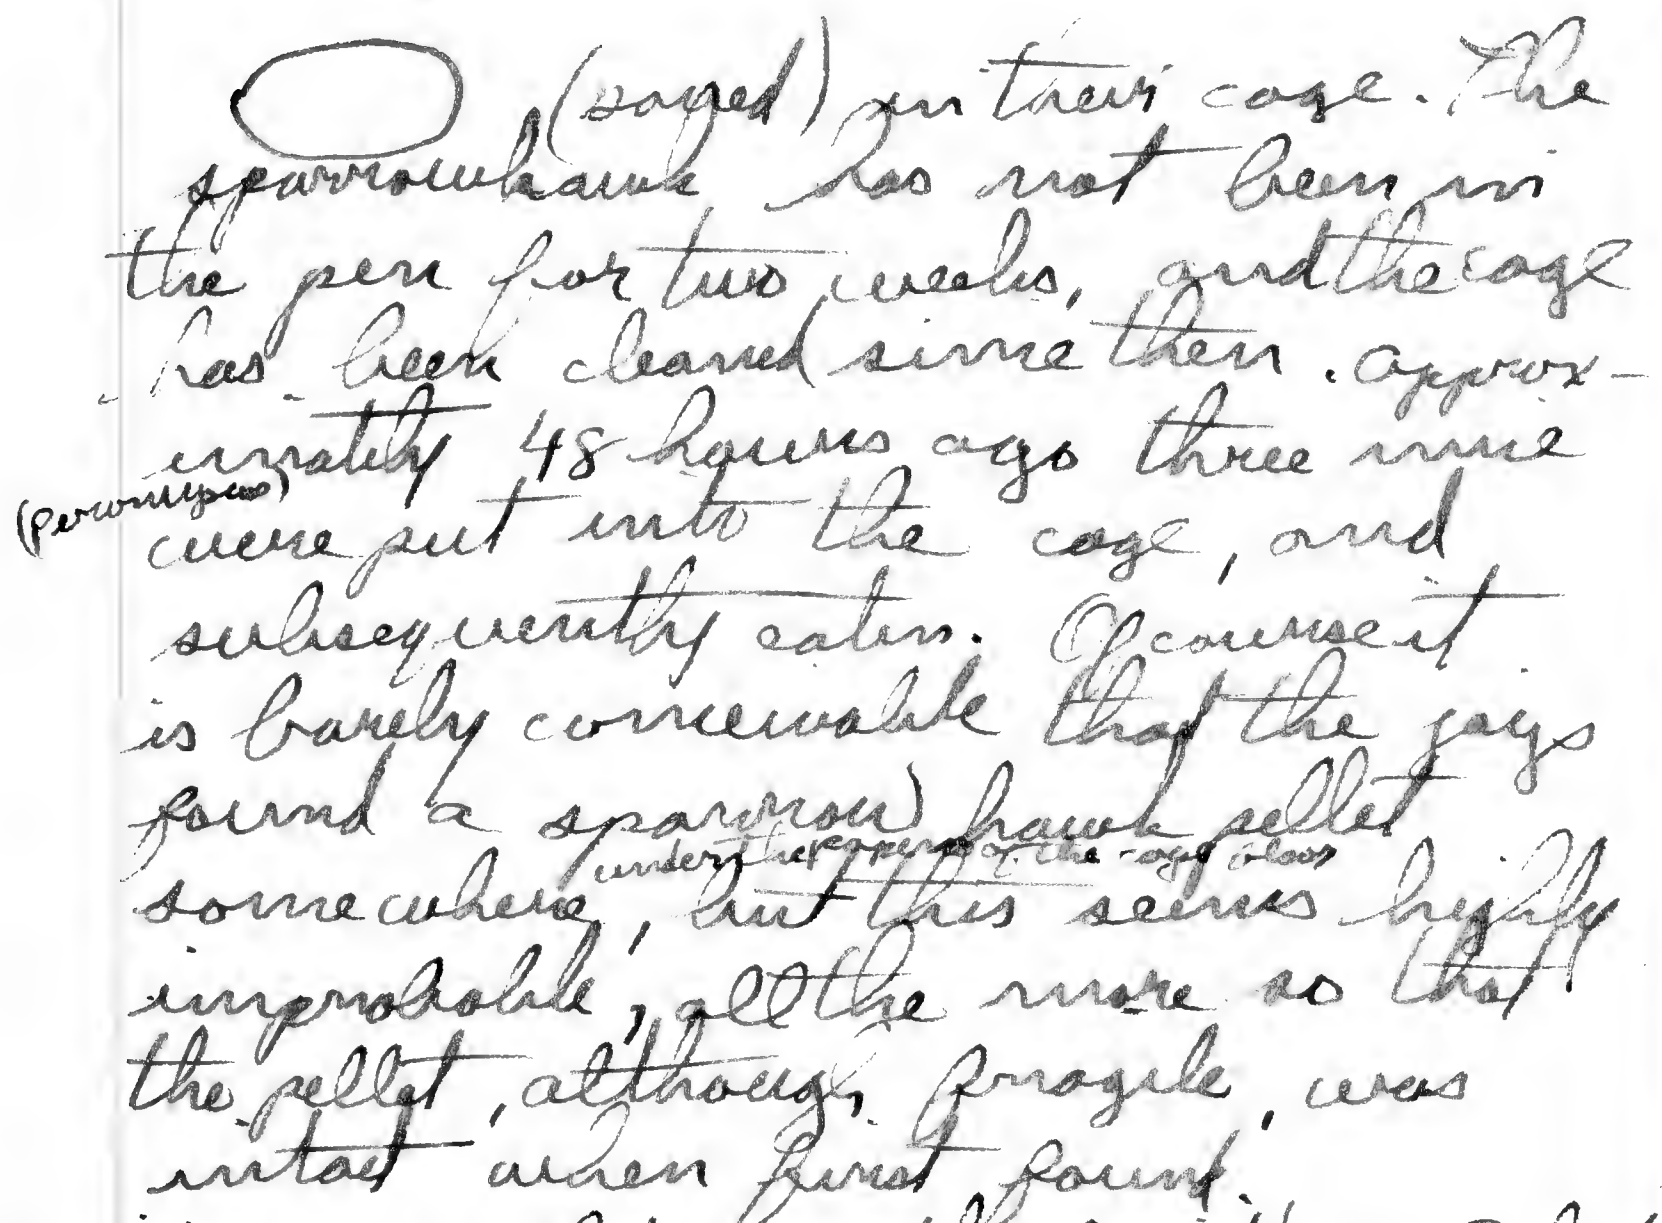 (saved) in their cage. The
sparrowhawk has not been in
the pen for two weeks, and the cage
has been cleaned since then. Approx-
imately 48 hours ago three mice
(peromyscus)
were put into the cage, and
subsequently eaten. Of course it
is barely conceivable that the jays
found a sparrow hawk pellet
under the of the cage
somewhere, but this seems highly
improbable, all the more so that
the pellet, although fragile, was
intact when first found.